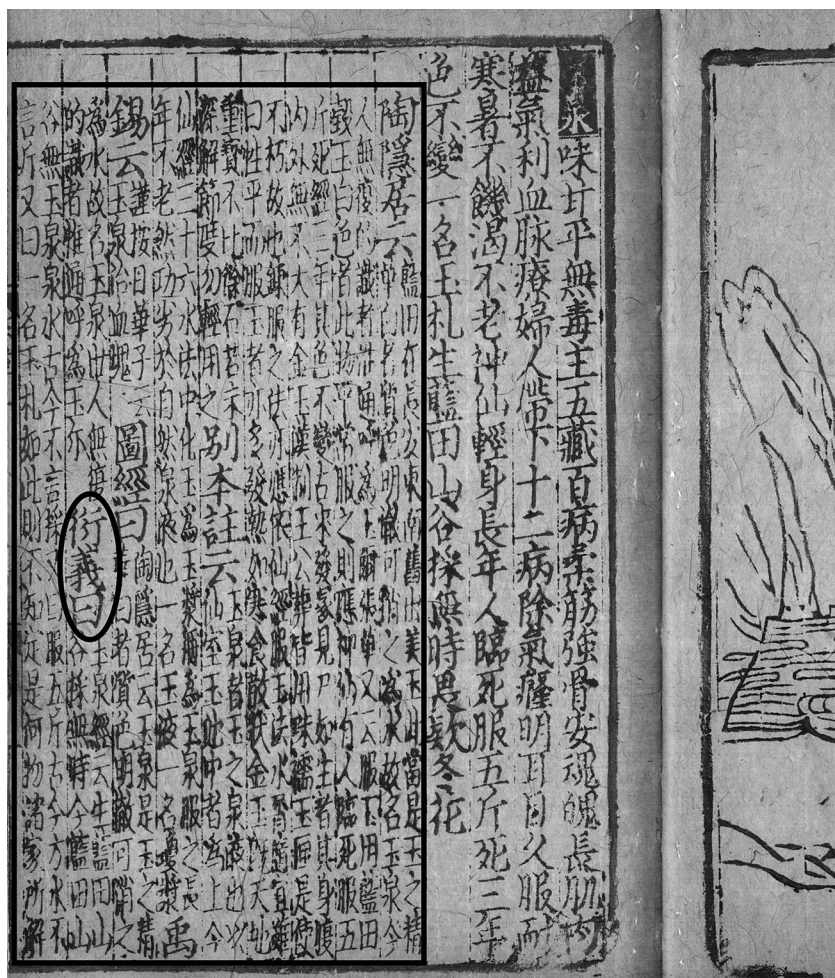 玉泉味甘平無毒主五藏百病柔筋強骨安魂魄長肌肉
益氣利血脉療婦人帶下十二病除氣癃明耳目久服耐
寒暑不飢渴不老神仙輕身長年人臨死服五斤死三年
色不變一名玉札生藍田山谷採無時畏欵冬花
陶隱居云藍田在長安東南舊出美玉此當是玉之精
可消之為水故名玉泉今
人無復的識者惟通呼為玉爾張華又云服玉用藍田
縠玉白色者此物平常服之則應神仙有人臨死服五
斤死經三年其色不變古來發冢見尸如生者其身腹
內外無不大有金玉漢制王公葬皆用珠襦玉匣是使
不朽故也鍊服之法亦應依仙經服玉法水屑隨宜雖
曰性平而服玉者亦多發熱如寒食散狀金玉既天地
重寶不比餘石若未
深解節度勿輕用之別本註云玉泉者玉之泉液也以
仙室玉池中者為上今
仙經三十六水法中化玉為玉漿稱為玉泉服之長
年不老然功劣於自然泉液也一名玉液一名瓊漿禹
錫云謹按日華子云
玉泉治血塊圖經曰
陶隱居云玉泉是玉之精
者質色明澈可消之
為水故名玉泉世人無復
的識者惟通呼為玉爾衍義曰玉泉經云生藍田山
谷採無時今藍田山
谷無玉泉泉水古今不言採又曰服五斤古今方水不
言斤又曰一名玉札如此則不知定是何物諸家所解